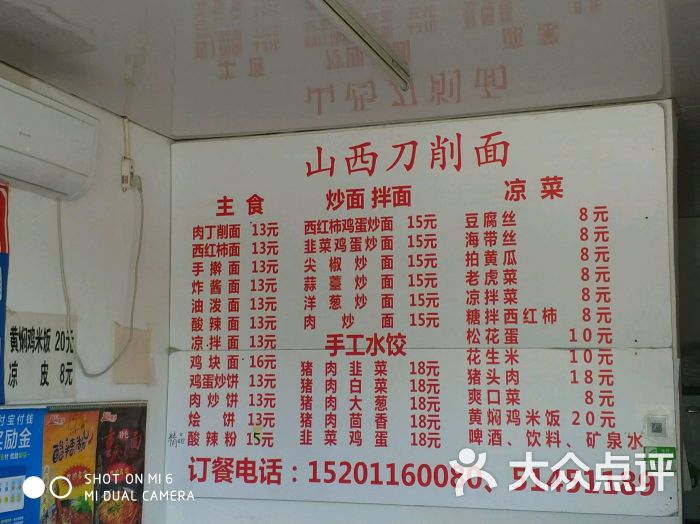 山西刀削面
主食
肉丁削面 13元
西红柿面 13元
手擀面 13元
炸酱面 13元
油泼面 13元
酸辣面 13元
凉拌面 13元
鸡块面 16元
鸡蛋炒饼 13元
肉炒饼 13元
烩饼 13元
酸辣粉 15元
炒面 拌面
西红柿鸡蛋炒面 15元
韭菜鸡蛋炒面 15元
尖椒炒面 15元
蒜薹炒面 15元
洋葱炒面 15元
肉炒面 15元
手工水饺
猪肉韭菜 18元
猪肉白菜 18元
猪肉大葱 18元
猪肉茴香 18元
韭菜鸡蛋 18元
凉菜
豆腐丝 8元
海带丝 8元
拍黄瓜 8元
老虎菜 8元
凉拌菜 8元
糖拌西红柿 8元
松花蛋 10元
花生米 10元
猪头肉 18元
爽口菜 8元
黄焖鸡米饭 20元
啤酒、饮料、矿泉水
订餐电话：15201160080、51451189
黄焖鸡米饭 20元
凉皮 8元
付宝付钱
奖励金
SHOT ON MI 6
MI DUAL CAMERA
大众点评